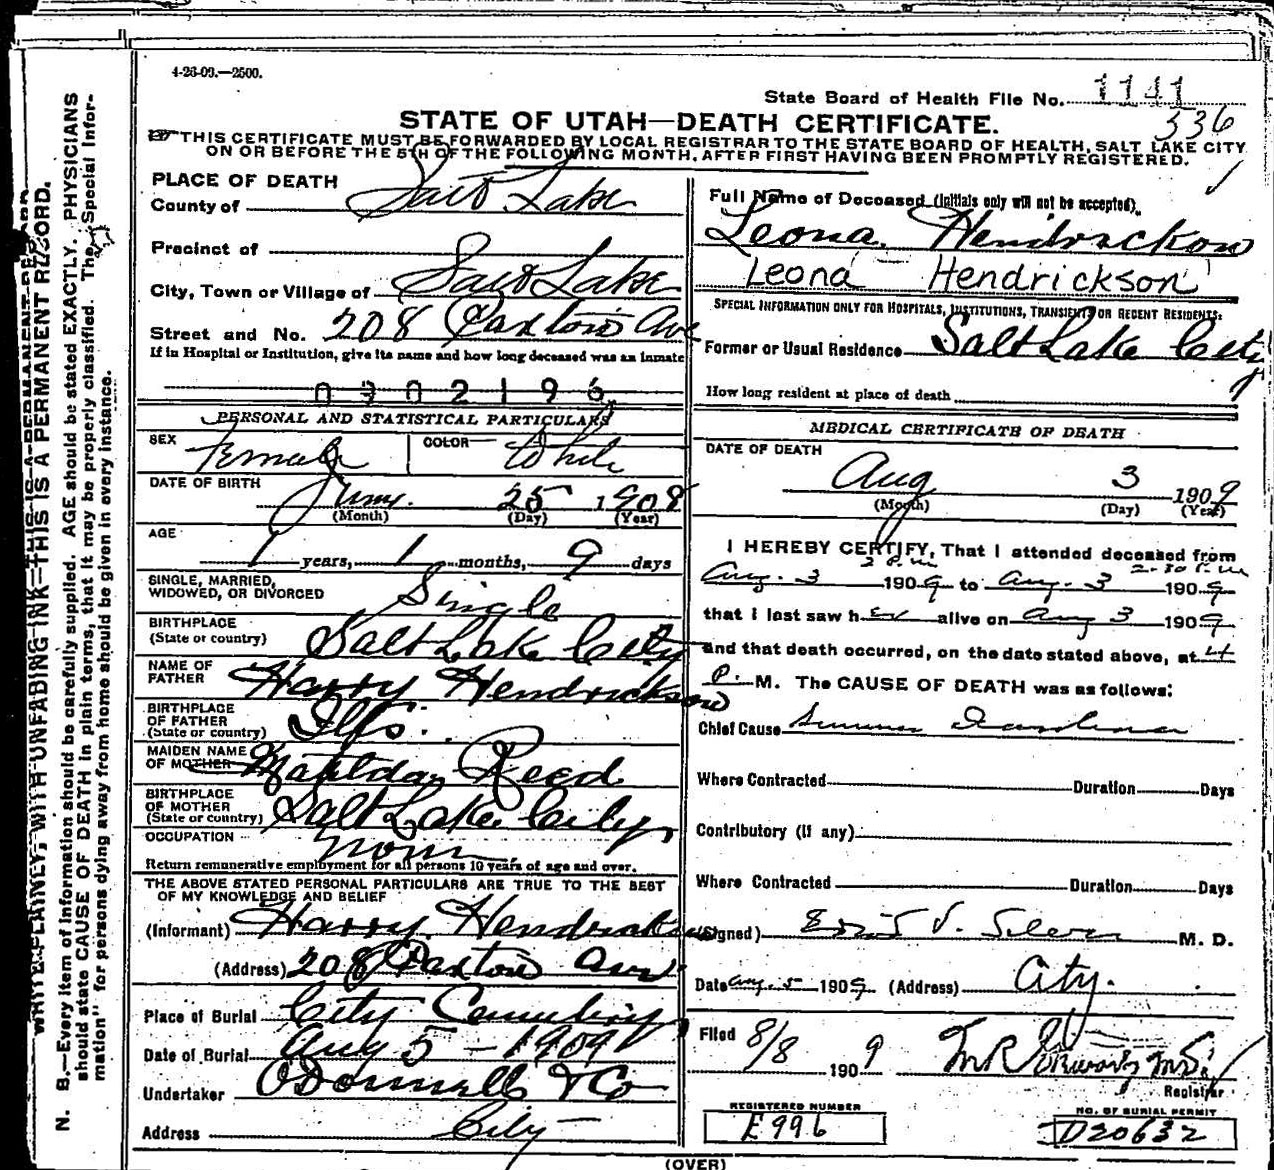 4-26-09.—2500.
State Board of Health File No. 1141
336
STATE OF UTAH—DEATH CERTIFICATE.
THIS CERTIFICATE MUST BE FORWARDED BY LOCAL REGISTRAR TO THE STATE BOARD OF HEALTH, SALT LAKE CITY
ON OR BEFORE THE 5TH OF THE FOLLOWING MONTH, AFTER FIRST HAVING BEEN PROMPTLY REGISTERED.
WRITE PLAINLY, WITH UNFADING INK—THIS IS A PERMANENT RECORD.
N. B.—Every item of information should be carefully supplied. AGE should be stated EXACTLY. PHYSICIANS
should state CAUSE OF DEATH in plain terms, that it may be properly classified. The "Special Infor-
mation" for persons dying away from home should be given in every instance.
PLACE OF DEATH
County of Salt Lake
Precinct of
City, Town or Village of Salt Lake
Street and No. 208 Paxton Ave
If in Hospital or Institution, give its name and how long deceased was an inmate
0002196
PERSONAL AND STATISTICAL PARTICULARS
SEX Female COLOR White
DATE OF BIRTH
25 1908
(Month) (Day) (Year)
AGE
1 years, 1 months, 9 days
SINGLE, MARRIED,
WIDOWED, OR DIVORCED Single
BIRTHPLACE
(State or country) Salt Lake City
NAME OF
FATHER Harry Hendrickson
BIRTHPLACE
OF FATHER
(State or country) Ills.
MAIDEN NAME
OF MOTHER Matilda Reed
BIRTHPLACE
OF MOTHER
(State or country) Salt Lake City
OCCUPATION None
Return remunerative employment for all persons 10 years of age and over.
THE ABOVE STATED PERSONAL PARTICULARS ARE TRUE TO THE BEST
OF MY KNOWLEDGE AND BELIEF
(Informant) Harry Hendrickson
(Address) 208 Paxton Ave
Place of Burial City Cemetery
Date of Burial Aug 5 - 1909
Undertaker O'Donnell & Co
Address City
Full Name of Deceased (Initials only will not be accepted)
Leona Hendrickson
Leona Hendrickson
SPECIAL INFORMATION ONLY FOR HOSPITALS, INSTITUTIONS, TRANSIENTS OR RECENT RESIDENTS:
Former or Usual Residence Salt Lake City
How long resident at place of death
MEDICAL CERTIFICATE OF DEATH
DATE OF DEATH
Aug 3 1909
(Month) (Day) (Year)
I HEREBY CERTIFY, That I attended deceased from
2 P.m 2-30 P.m
Aug. 3 1909 to Aug. 3 1909
that I last saw her alive on Aug 3 1909
and that death occurred, on the date stated above, at 4
P. M. The CAUSE OF DEATH was as follows:
Chief Cause Summer Diarrhoea
Where Contracted Duration Days
Contributory (if any)
Where Contracted Duration Days
(Signed) M. D.
Date Aug. 5 1909 (Address) City.
Filed 8/8 1909
Registrar
REGISTERED NUMBER
E996
NO. OF BURIAL PERMIT
D20632
(OVER)